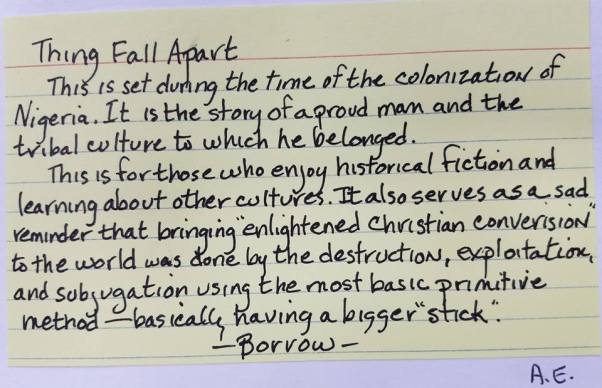 Thing Fall Apart
This is set during the time of the colonization of
Nigeria. It is the story of a proud man and the
tribal culture to which he belonged.
This is for those who enjoy historical fiction and
learning about other cultures. It also serves as a sad
reminder that bringing "enlightened Christian converision"
to the world was done by the destruction, exploitation,
and subjugation using the most basic primitive
method — basically, having a bigger "stick".
—Borrow—
A.E.